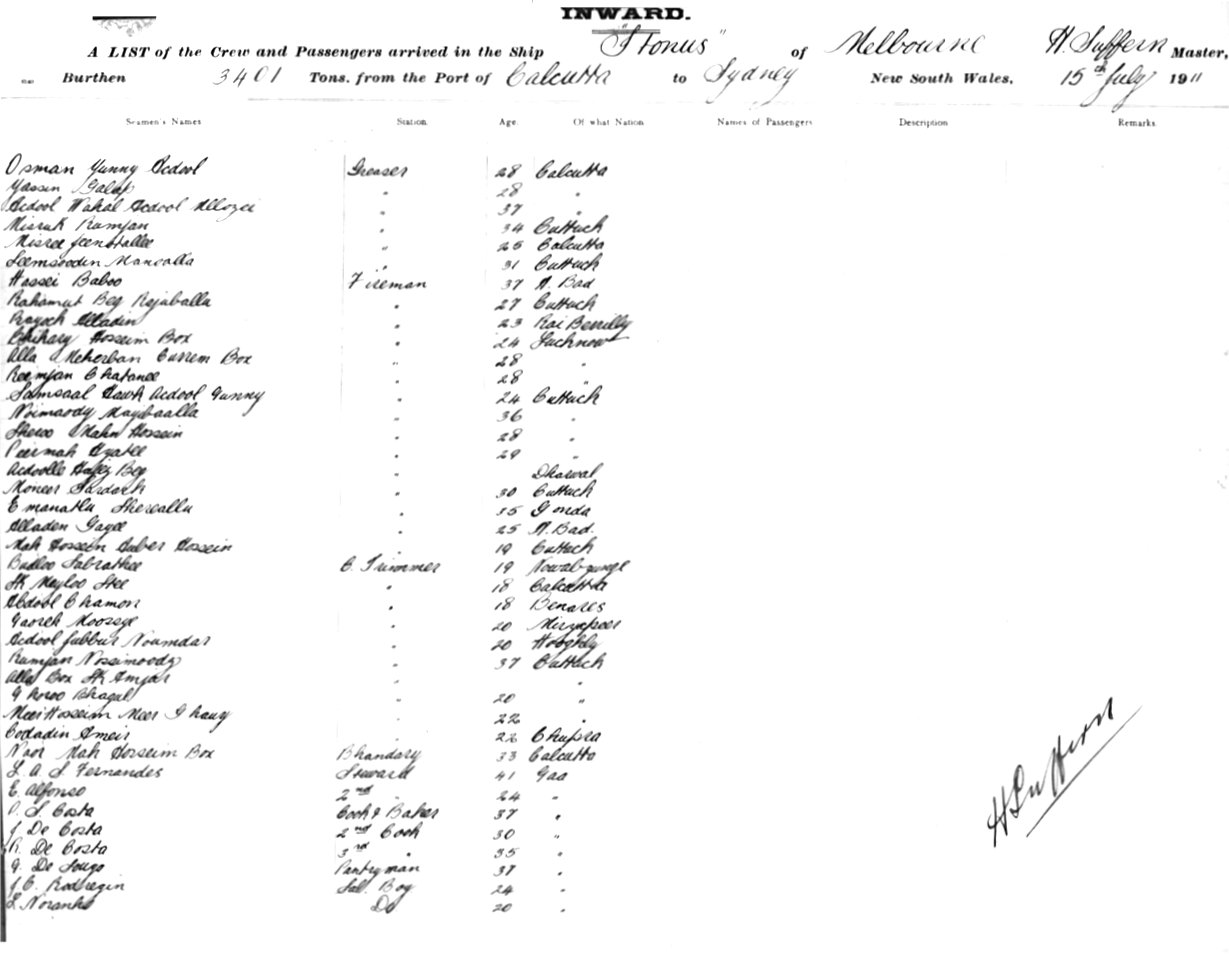 INWARD.
A LIST of the Crew and Passengers arrived in the Ship "Itonus" of Melbourne H. Suffern Master,
Burthen 3401 Tons. from the Port of Calcutta to Sydney New South Wales, 15th July 1911
Seamen's Names Station. Age. Of what Nation Names of Passengers Description Remarks
Osman Gunny Acdool Greaser 28 Calcutta
Yassin Galap " 28 "
Acdool Wahal Acdool " 37 "
Misruk Rumjan " 34 Cuttuck
Misree " 25 Calcutta
" 31 Cuttuck
Hossei Baboo Fireman 37 A. Bad
Rahamut Beg Rojuballa " 27 Cuttuck
Alladin " 23 Rai Berrilly
Hosseim Box " 24 Lucknow
Alla Meherban Currem Box " 28 "
Reemjan Chatanee " 28 "
Samsaal Hawk Acdool Gunny " 24 Cuttuck
Noimaody " 36 "
Sheroo Mahn Hossein " 28 "
Peermah Hyatee " 29 "
Acdoolle Hafiz Beg " Dharwal
Moneer Sardock " 30 Cuttuck
Emanatlu Shereallu " 35 Gonda
Alladen Gayee " 25 A. Bad.
Mah Hossein Huber Hossein " 19 Cuttuck
Budloo Sabrathee C. Trimmer 19 Nowabgunge
Sk " 18 Calcutta
Abdool Chamon " 18 Benares
Gaoreh Moossye " 20 Mirzapoor
Acdool Jubbur Noumdar " 20 Hooghly
Rumjan Nossimoody " 37 Cuttuck
Alla Box Sk Amjar " "
Bhagul " 20 "
Meer Hosseim Meer " 22 "
Codadin Ameir " 22 Chupra
Noor Mah Hosseim Box Bhandary 33 Calcutta
L. A. S. Fernandes Steward 41 Goa
E. Alfonso 2nd " 24 "
P. S. Costa Cook & Baker 37 "
J. De Costa 2nd Cook 30 "
R. De Costa 3rd " 35 "
G. De Souza Pantryman 37 "
J. C. Rodregin Sal. Boy 24 "
L. Noranho Do 20 "
H Suffern